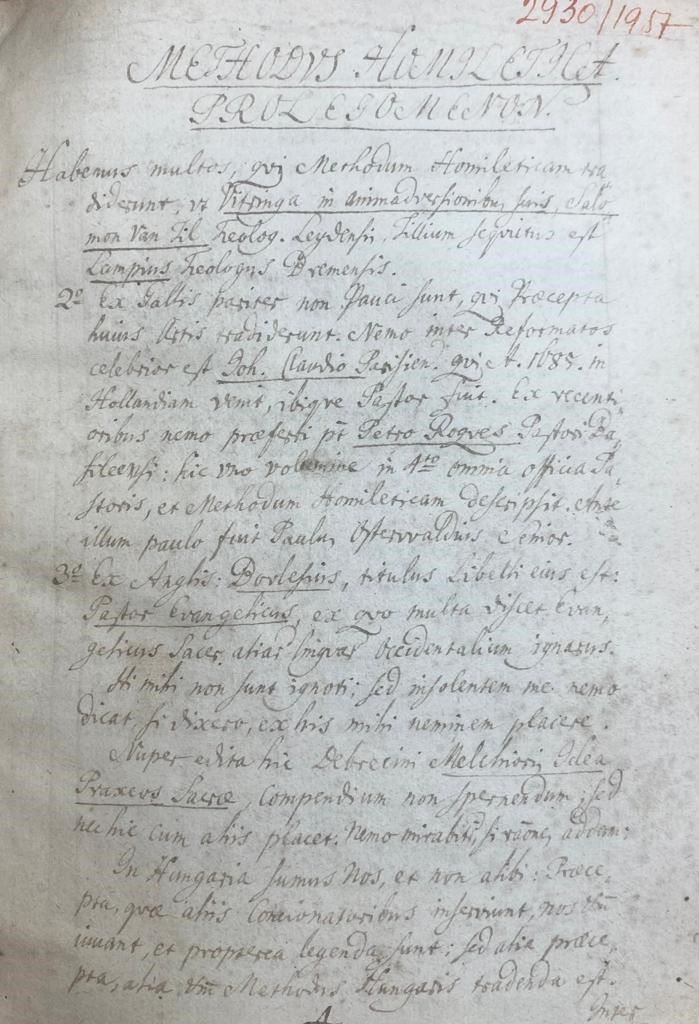 2930/1957
METHODVS HOMILETICA.
PROLEGOMENON.
Habemus multos, qvi Methodum Homileticam tra
diderunt, vt Vitringa in animadversionibus suis, Salo
mon Van Til Theolog. Leydensis, Tillium seqvutus est
Lampius Theologus Bremensis.
2º Ex Gallis pariter non Pauci sunt, qvi Præcepta
huius Artis tradiderunt. Nemo inter Reformatos
celebrior est Joh. Claudio Parisien. qvi A. 1685. in
Hollandiam venit, ibiqve Pastor fuit. Ex recenti
oribus nemo præferri pt Petro Roqves Pastori Ba,
sileensi: hic vno volumine in 4to omnia officia Pa
storis, et Methodum Homileticam descripsit. Ante
illum paulo fuit Paulus Ostervvaldus Senior.
3º Ex Anglis: Dovlesius, titulus Libelli eius est:
Pastor Evangelicus, ex qvo multa discet Evan,
gelicus Sacer, alias lingvar Occidentalium ignarus.
Hi mihi non sunt ignoti; sed insolentem me nemo
dicat, si dixero, ex his mihi neminem placere.
Nuper edita hic Debrecini Melchioris Idea
Praxeos Sacræ, Compendium non spernendum; sed
nec hic cum aliis placet: Nemo mirabit, si raone addam:
In Hungaria sumus Nos, et non alibi: Præce,
pta, quæ aliis Concionatoribus inserviunt, nos
iuvant, et propterea legenda sunt; sed alia præce,
pta, alia Methodus Hungaris tradenda est.
Inter